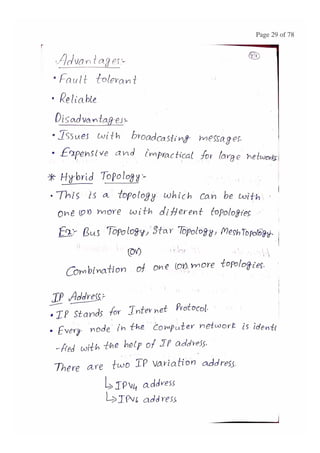 Page 29 of 78
Advantages:-
• Fault tolerant
• Reliable
Disadvantages:-
• Issues with broadcasting messages.
• Expensive and impractical for large networks
* Hybrid Topology:-
• This is a topology which can be with
one (or) more with different topologies
Ex:- Bus Topology, Star Topology, Mesh Topology.
(or)
Combination of one (or) more topologies.
IP Address:-
• IP stands for Internet Protocol.
• Every node in the computer network is identi
-fied with the help of IP address.
There are two IP variation address
↳ IPV4 address
↳ IPV6 address